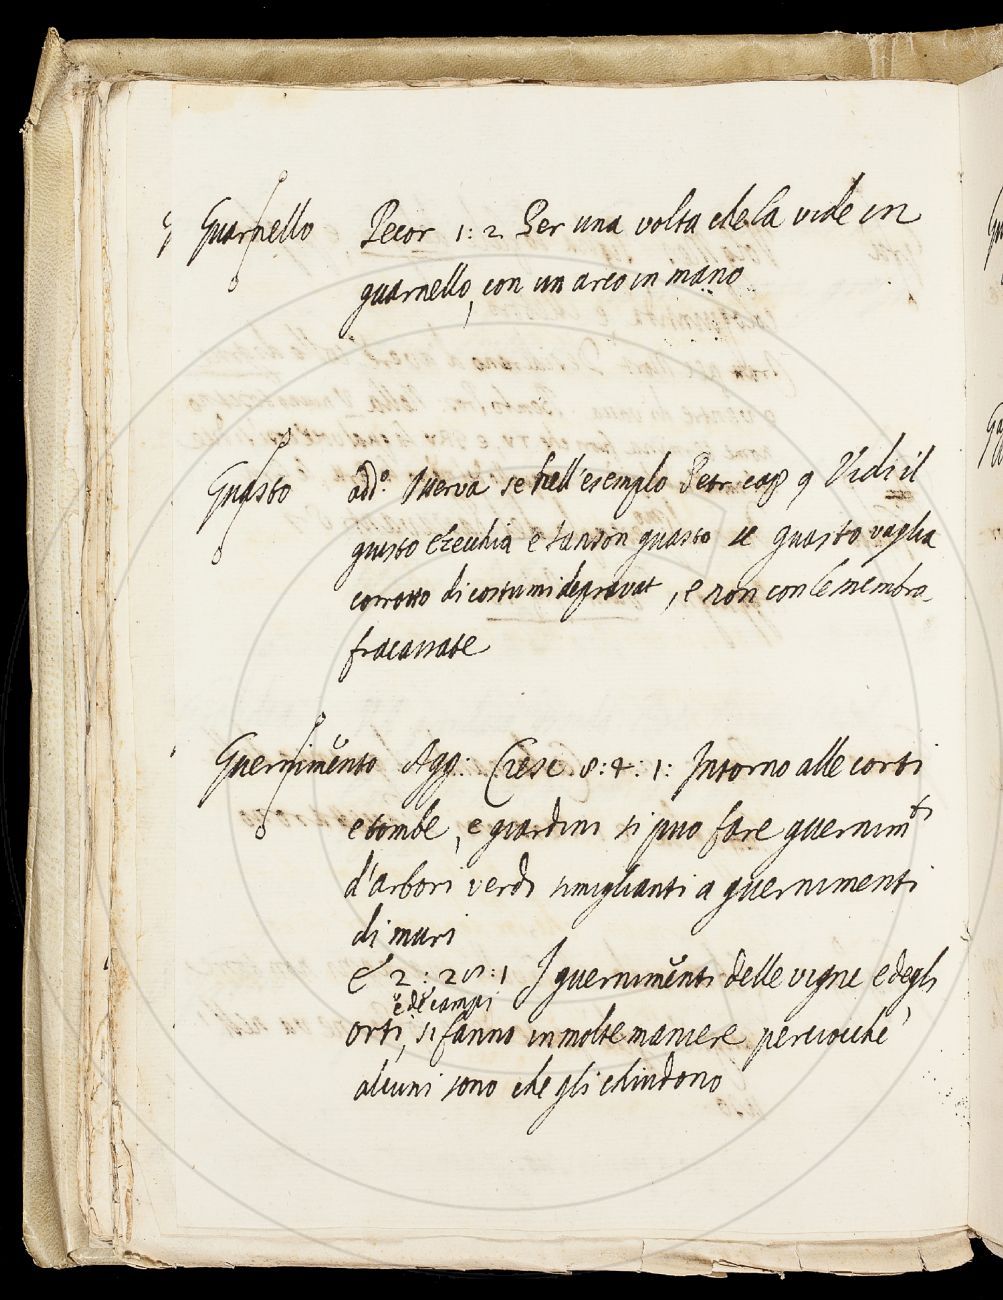 Guarnello Pecor 1: 2 Per una volta che la vide in
guarnello, con un arco in mano
Guasto add.º Osserva se nell'esempio Petr. cap 9 Vidi il
giusto Ezechia e Sanson guasto se guasto vaglia
corrotto di costumi depravat, e non con le membra
fracassate
Guernimẽnto Agg: Cresc 8: 4: 1: Intorno alle corti
e tombe, e giardini si puo fare guernimti
d'arbori verdi simiglianti a guernimenti
di muri
E 2: 28: 1 I guernimẽnti delle vigne e degli
e de campi
orti, si fanno in molte maniere perciocche
alcuni sono che gli chiudono